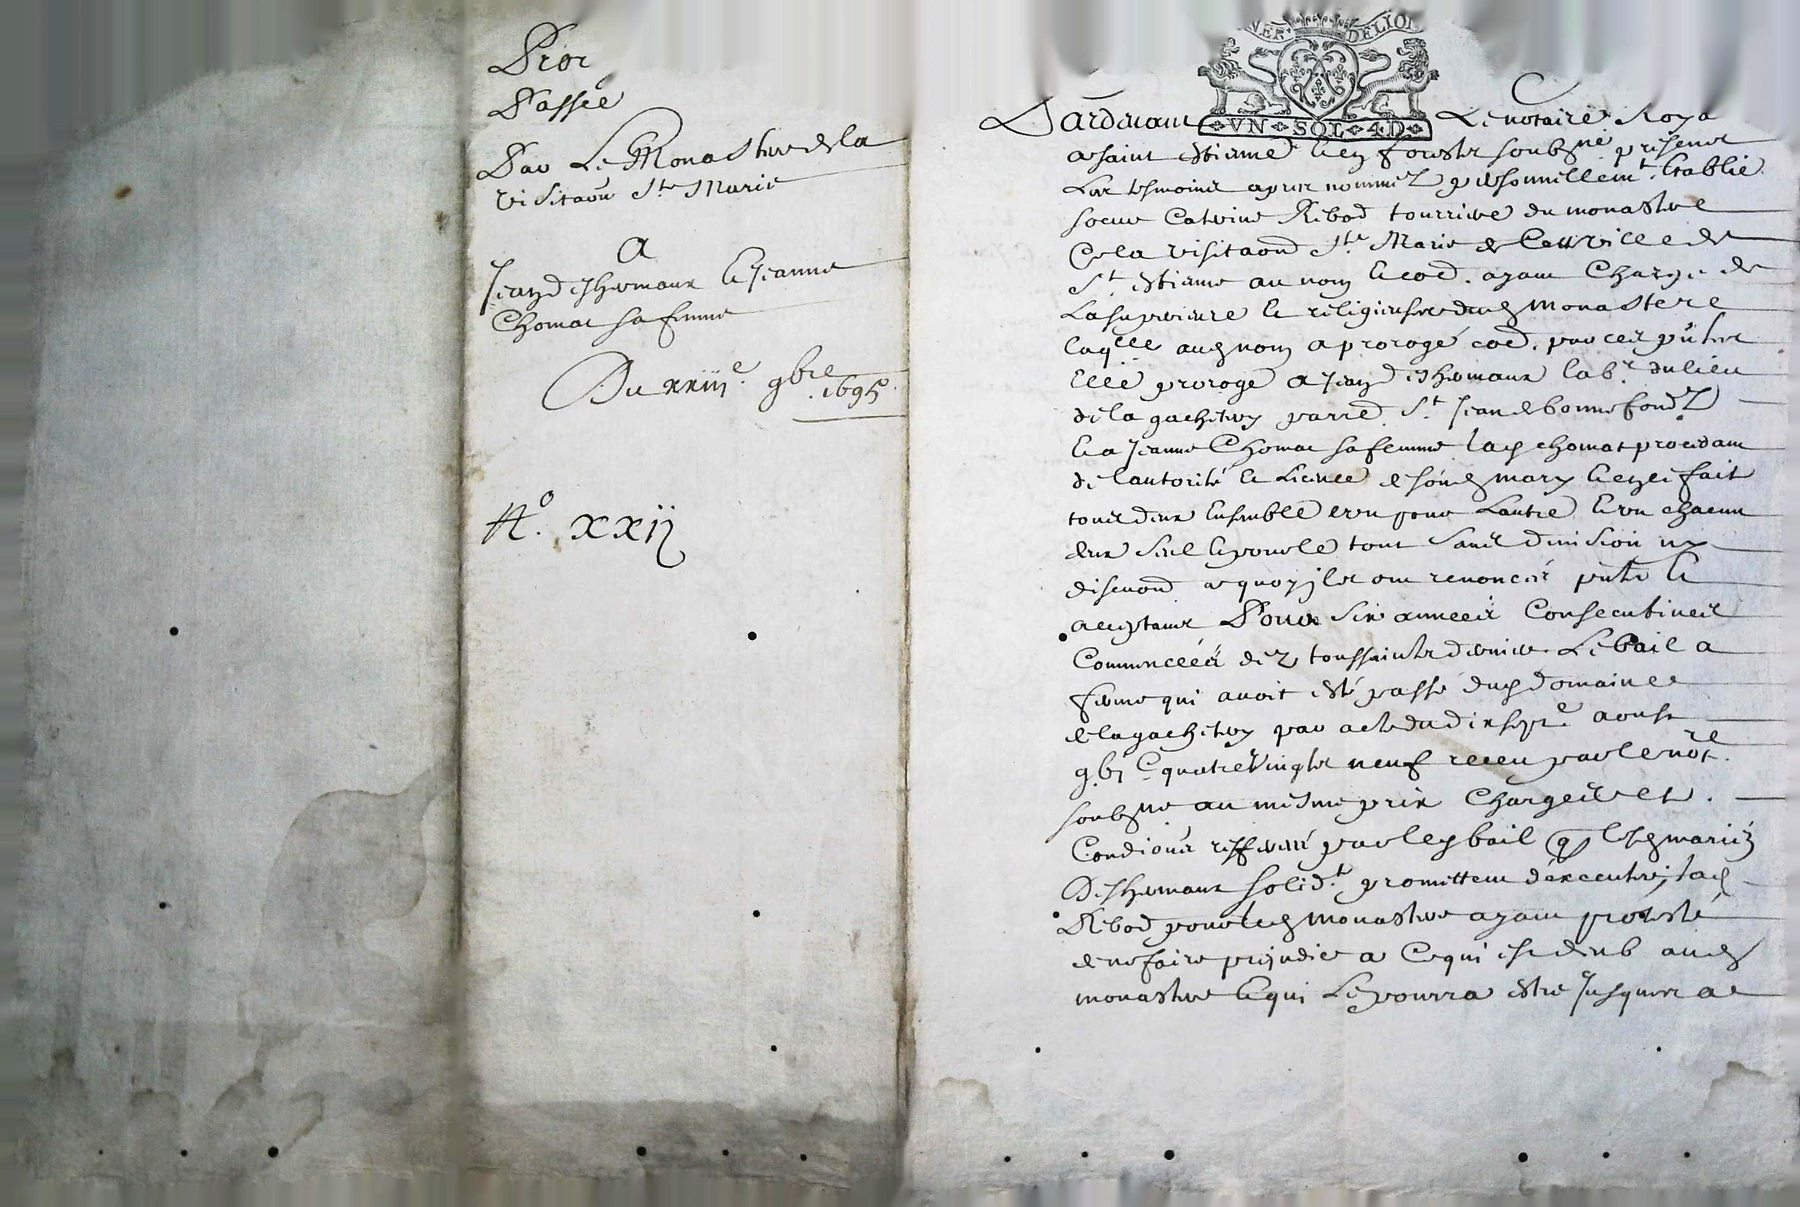 Pror
Passée
Par Le Monastere de la
visitaōn Ste Marie
A
Jean deshormaux & Jeanne
Chomat sa femme
Du xxiiie. 9bre
1695.
No. xxij
VER DELION
VN SOL 4D
Pardevant Le notaire Roya
a saint Estienne & en forestz soubsné present
Les tesmoins apres nommez personnellemt. Establie
soeur Catrine Ribod tourriere du monastere
de la visitaōn Ste Marie de cette ville de
St. Estienne au nom & cōe. ayant Charge de
La superieure & religieuses dud monastere
laqlle aud nom a prorogé cōe. par ces pntes
Elle proroge a Jean deshormaux labr. du lieu
de la gacheten parre. St. Jean de bonnefondz
& a Jeanne Chomat sa femme lad chomat procedant
de lautorité & Licence de sond mary & en ce fait
tous deux Ensemble lun pour Lautre & un chacun
deux seul & pour le tout sans division ny
discution a quoy ils ont renoncés pnts &
acceptants Pour Six années Consecutives
Commencées dez toussaints derniere Le bail a
ferme qui avoit esté passé dud domaine
de la gacheten par acte du dixsepte. aoust
gbi C quatre Vingts neuf receu par le nore.
soubsne au mesme prix Charges et.
Condiōns reservés par led bail q lesd mariés
Deshormaux solidt. promettent dexecuter, lad
Ribod pour led monastere ayant protesté
de ne faire prejudice a Ce qui est deub aud
monastere & qui Le pourra estre Jusques a